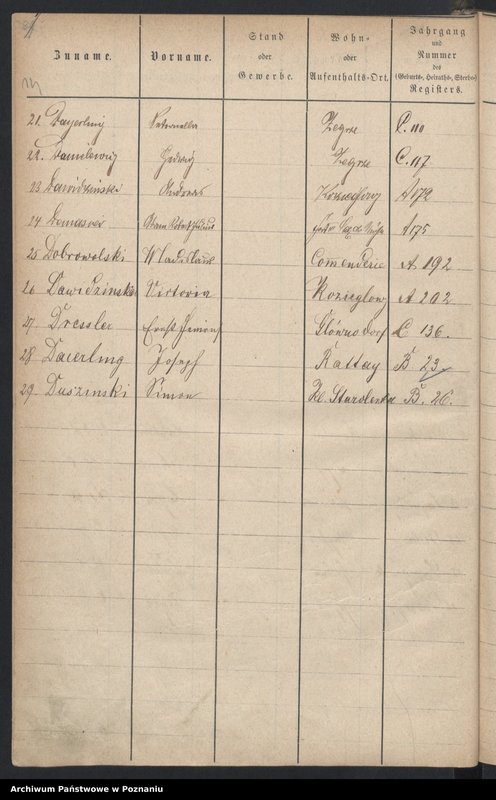 Zuname. Vorname. Stand oder Gewerbe. Wohn- oder Aufenthalts-Ort. Jahrgang und Nummer des (Geburts-, Heiraths-, Sterbe-) Registers.
21. Bayerling Petronella Zegrze C. 110
22. Danilewicz Hedwig Zegrze C. 117
23 Dawidzinska Andreas A 172
24 A 175
25 Dobrowolski Wladislaus Comenderie A 192
26 Dawidzinska Victoria Kozieglow A 202
27. Dressler Ernst Główno Dorf C 136.
28 Daierling Joseph Rattay B 23
29. Daszinski Simon Kl. Starolenka B. 26.
Archiwum Państwowe w Poznaniu